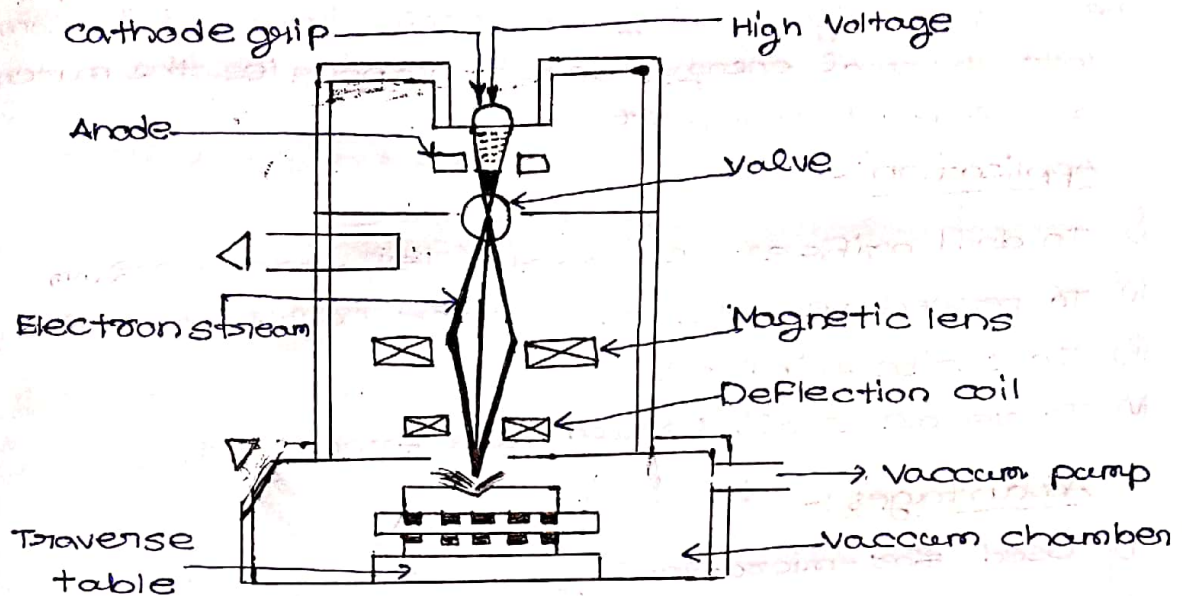 cathode grip
High Voltage
Anode
valve
Electron stream
Magnetic lens
Deflection coil
Vaccum pump
Traverse
table
vaccum chamber